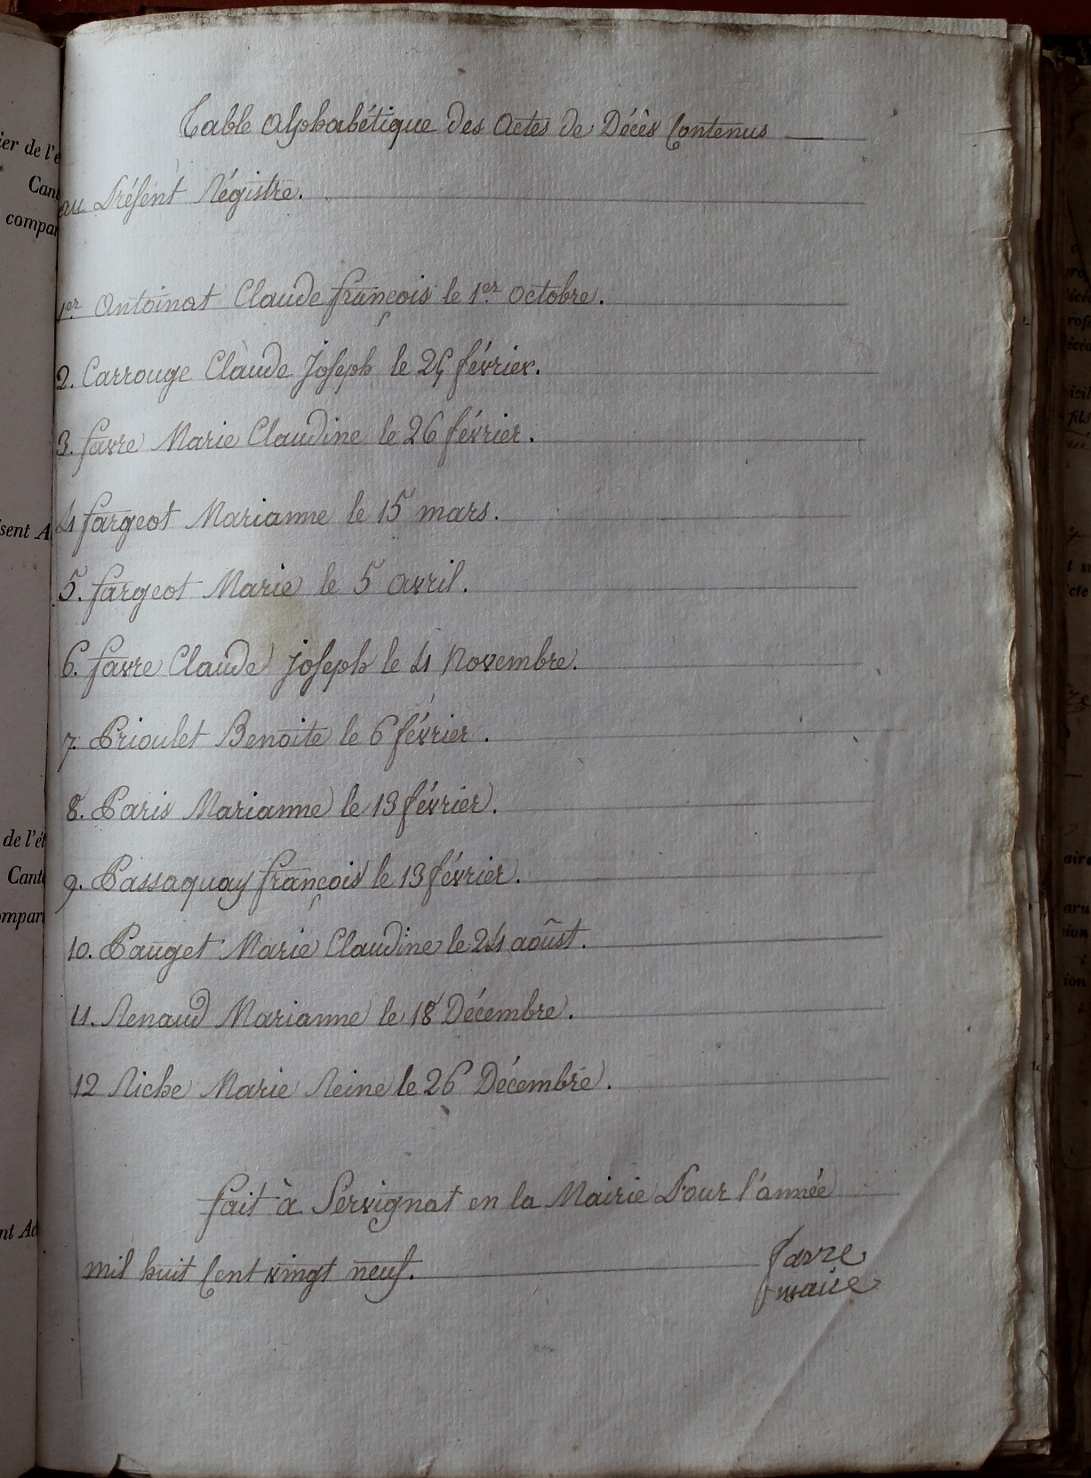 Table Alphabétique des Actes de Décès Contenus
au Présent Régistre.
1er Antoinat Claude françois le 1er octobre.
2. Carrouge Claude Joseph le 25 février.
3. favre Marie Claudine le 26 février.
4 fargeot Marianne le 15 mars.
5. fargeot Marie le 5 avril.
6. favre Claude joseph le 4 Novembre.
7. Prioulet Benoite le 6 février.
8. Paris Marianne le 13 février.
9. Passaquay françois le 13 février.
10. Pauget Marie Claudine le 24 août.
11. Renaud Marianne le 18 Décembre.
12 Riche Marie Reine le 26 Décembre.
fait à Servignat en la Mairie Pour l'année
mil huit Cent vingt neuf.
favre
maire